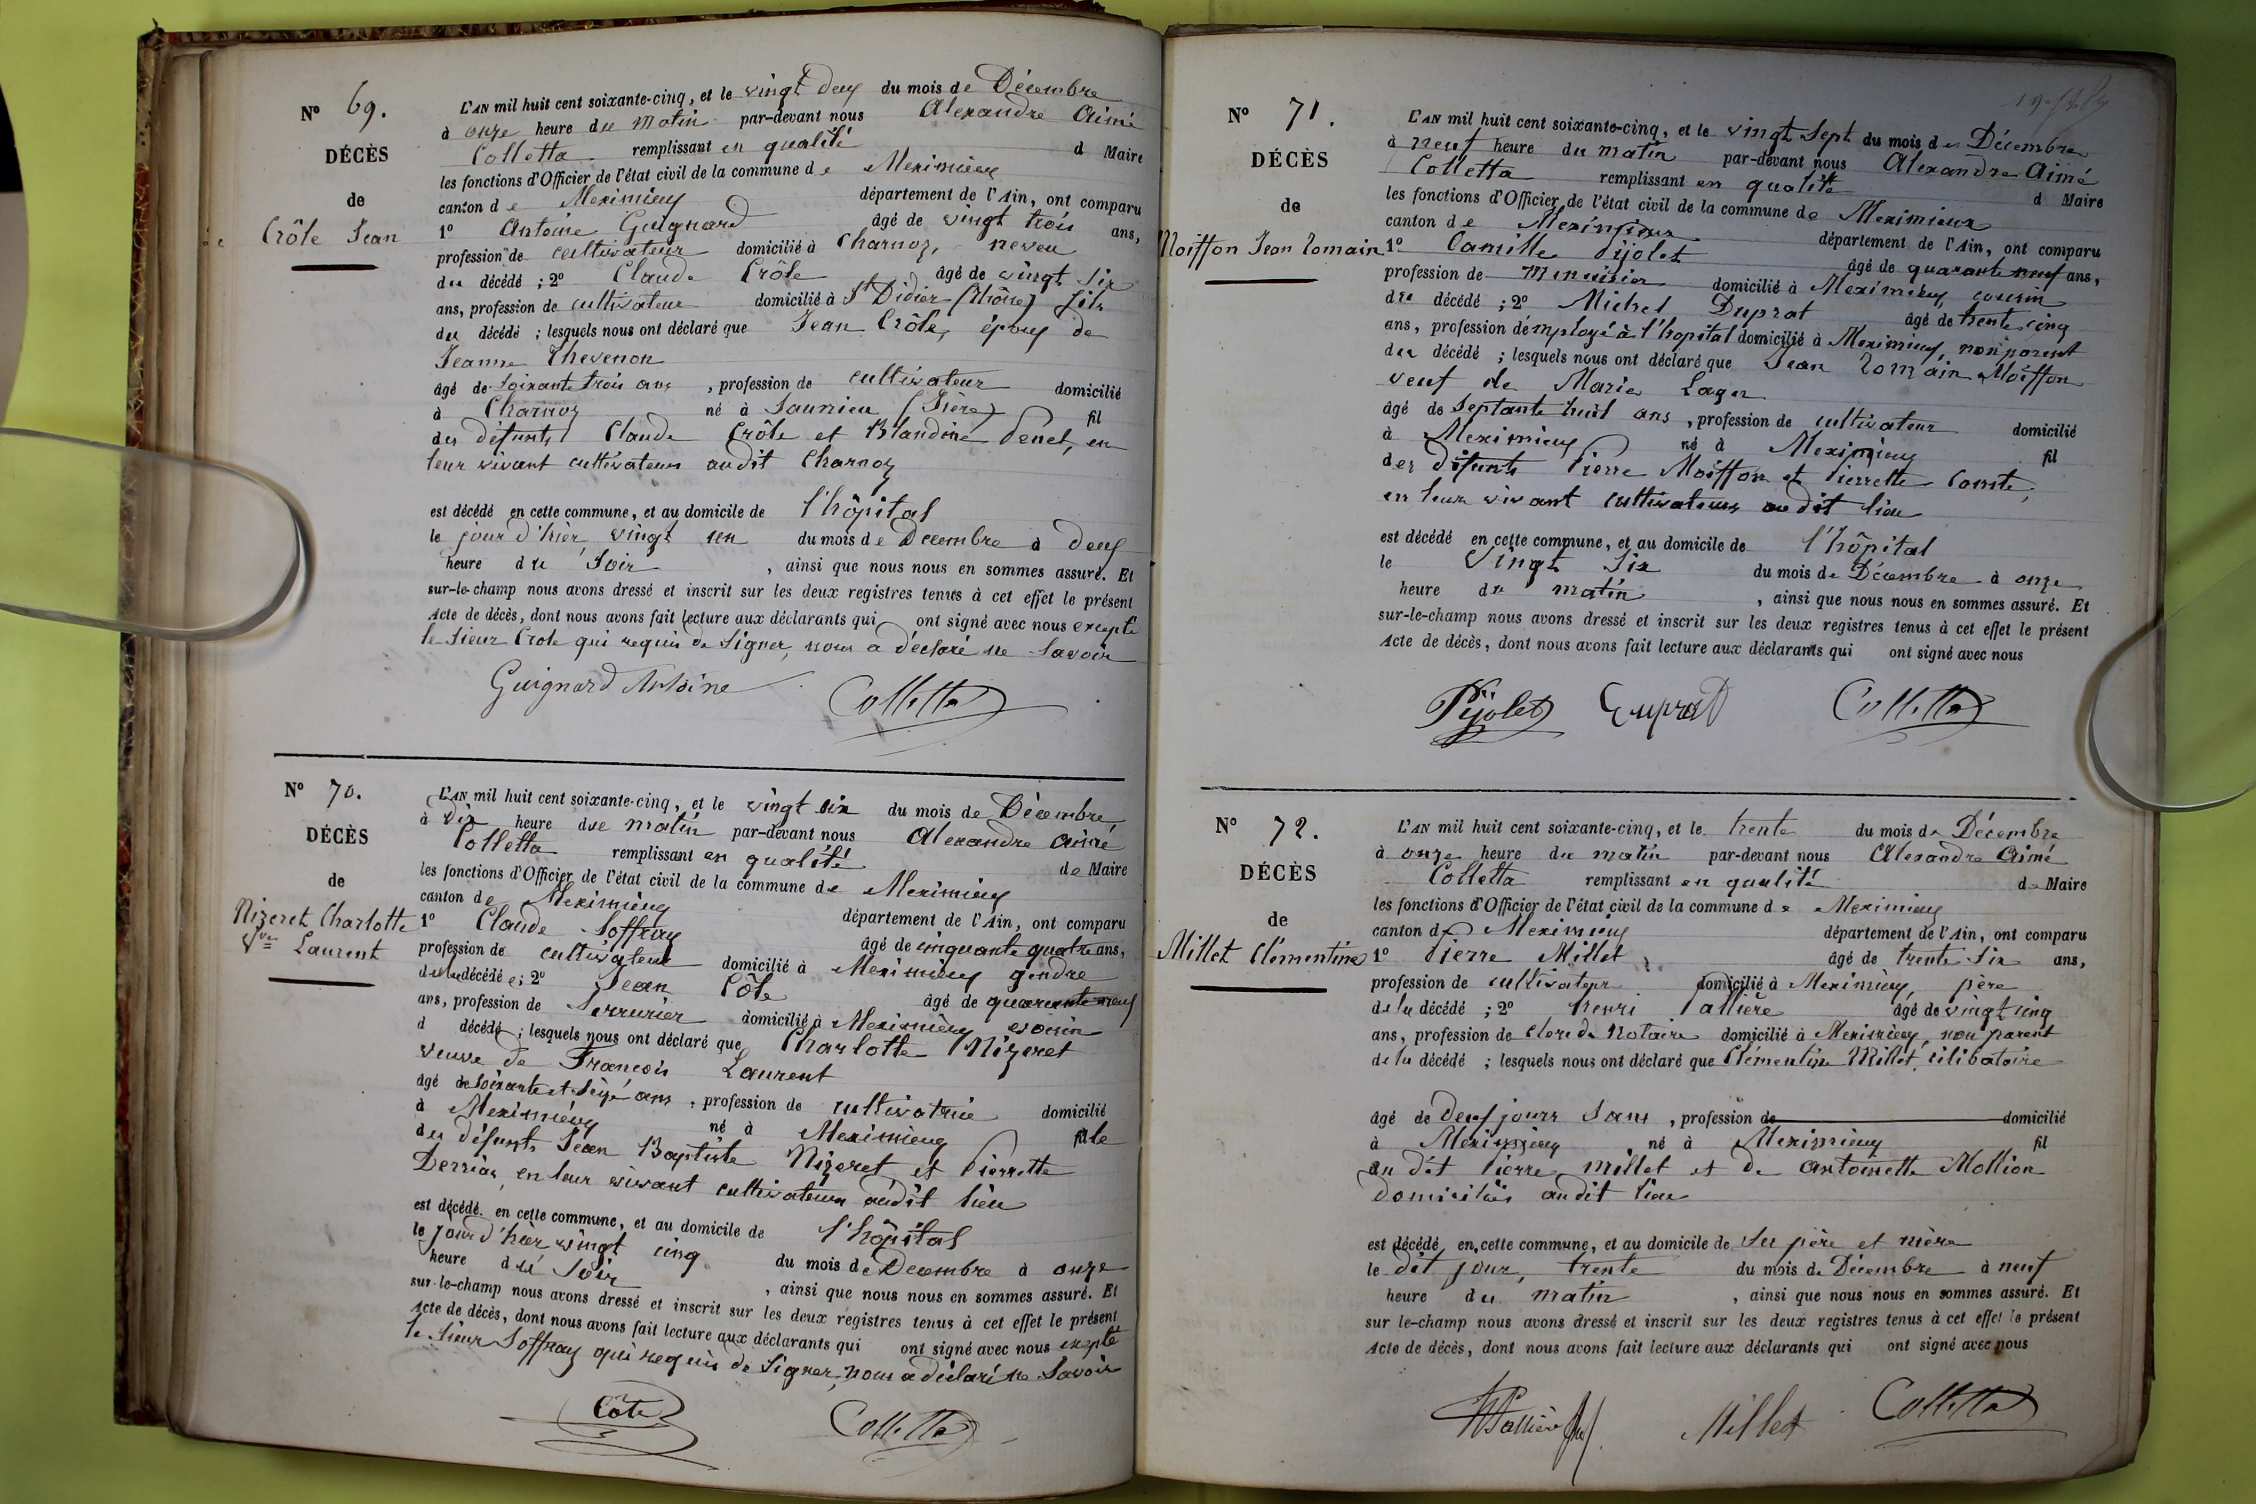 N° 69.
DÉCÈS
de
Crôle Jean
L'AN mil huit cent soixante-cinq, et le vingt deux du mois de Décembre
à onze heure du matin par-devant nous Alexandre Aimé
Colletta remplissant en qualité d Maire
les fonctions d'Officier de l'état civil de la commune de Meximieux
canton de Meximieux département de l'Ain, ont comparu
1° Antoine Guignard âgé de vingt trois ans,
profession de cultivateur domicilié à Charnoz, neveu
du décédé ; 2° Claude Crôle âgé de vingt six
ans, profession de cultivateur domicilié à St Didier (Rhône) fils
du décédé ; lesquels nous ont déclaré que Jean Crôle, époux de
Jeanne Thevenon
âgé de soixante trois ans, profession de cultivateur domicilié
à Charnoz né à Jaunieu (Isère) fil
des défunts Claude Crôle et Blandine Penet, en
leur vivant cultivateurs audit Charnoz
est décédé en cette commune, et au domicile de l'hôpital
le jour d'hier, vingt un du mois de Décembre à deux
heure du soir, ainsi que nous nous en sommes assuré. Et
sur-le-champ nous avons dressé et inscrit sur les deux registres tenus à cet effet le présent
Acte de décès, dont nous avons fait lecture aux déclarants qui ont signé avec nous excepté
le sieur Crole qui requis de signer, nous a déclaré ne savoir
Guignard Antoine Colletta
N° 70.
DÉCÈS
de
Nizeret Charlotte
Vve Laurent
L'AN mil huit cent soixante-cinq, et le vingt six du mois de Décembre
à dix heure du matin par-devant nous Alexandre Aimé
Colletta remplissant en qualité de Maire
les fonctions d'Officier de l'état civil de la commune de Meximieux
canton de Meximieux département de l'Ain, ont comparu
1° Claude Soffray âgé de cinquante quatre ans,
profession de cultivateur domicilié à Meximieux gendre
de la décédée ; 2° Jean Côte âgé de quarante neuf
ans, profession de Serrurier domicilié à Meximieux voisin
d décédé ; lesquels nous ont déclaré que Charlotte Nizeret
veuve de François Laurent
âgé de soixante et seize ans, profession de cultivatrice domicilié
à Meximieux né à Meximieux fille
des défunts Jean Baptiste Nizeret et Pierrette
Derrias, en leur vivant cultivateurs audit lieu
est décédé en cette commune, et au domicile de l'hôpital
le jour d'hier vingt cinq du mois de Décembre à onze
heure du soir, ainsi que nous nous en sommes assuré. Et
sur-le-champ nous avons dressé et inscrit sur les deux registres tenus à cet effet le présent
Acte de décès, dont nous avons fait lecture aux déclarants qui ont signé avec nous excepté
le sieur Soffray qui requis de signer, nous a déclaré ne savoir
Côte Colletta
N° 71.
DÉCÈS
de
Moiffon Jean Romain
L'AN mil huit cent soixante-cinq, et le vingt sept du mois de Décembre
à neuf heure du matin par-devant nous Alexandre Aimé
Colletta remplissant en qualité d Maire
les fonctions d'Officier de l'état civil de la commune de Meximieux
canton de Meximieux département de l'Ain, ont comparu
1° Camille Pijolet âgé de quarante neuf ans,
profession de menuisier domicilié à Meximieux cousin
du décédé ; 2° Michel Duprat âgé de trente cinq
ans, profession d'employé à l'hopital domicilié à Meximieux, non parent
du décédé ; lesquels nous ont déclaré que Jean Romain Moiffon
veuf de Marie Lager
âgé de septante huit ans, profession de cultivateur domicilié
à Meximieux né à Meximieux fil
des défunts Pierre Moiffon et Pierrette Comte,
en leur vivant cultivateurs audit lieu
est décédé en cette commune, et au domicile de l'hôpital
le vingt six du mois de Décembre à onze
heure du matin, ainsi que nous nous en sommes assuré. Et
sur-le-champ nous avons dressé et inscrit sur les deux registres tenus à cet effet le présent
Acte de décès, dont nous avons fait lecture aux déclarants qui ont signé avec nous
Pijolet Duprat Colletta
N° 72.
DÉCÈS
de
Millet Clémentine
L'AN mil huit cent soixante-cinq, et le trente du mois de Décembre
à onze heure du matin par-devant nous Alexandre Aimé
Colletta remplissant en qualité de Maire
les fonctions d'Officier de l'état civil de la commune de Meximieux
canton de Meximieux département de l'Ain, ont comparu
1° Pierre Millet âgé de trente six ans,
profession de cultivateur domicilié à Meximieux, père
de la décédé ; 2° Henri Pallière âgé de vingt cinq
ans, profession de clerc de Notaire domicilié à Meximieux, non parent
de la décédé ; lesquels nous ont déclaré que Clémentine Millet, célibataire
âgé de deux jours ans, profession de domicilié
à Meximieux né à Meximieux fil
du dit Pierre Millet et de Antoinette Mollion
domiciliés audit lieu
est décédé en cette commune, et au domicile de ses père et mère
le dit jour, trente du mois de Décembre à neuf
heure du matin, ainsi que nous nous en sommes assuré. Et
sur le-champ nous avons dressé et inscrit sur les deux registres tenus à cet effet le présent
Acte de décès, dont nous avons fait lecture aux déclarants qui ont signé avec nous
HPallière Millet Colletta